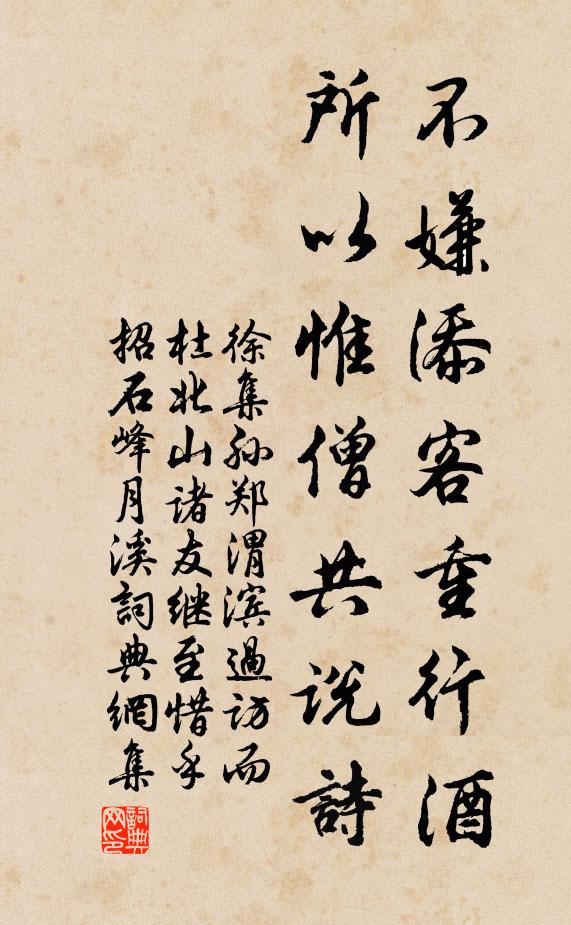 不嫌添客重行酒
所以惟僧共说詩
徐集孙郑渭滨過访而
杜北山诸友继至惜乎
招石峰月溪詞典網集
詞典网印